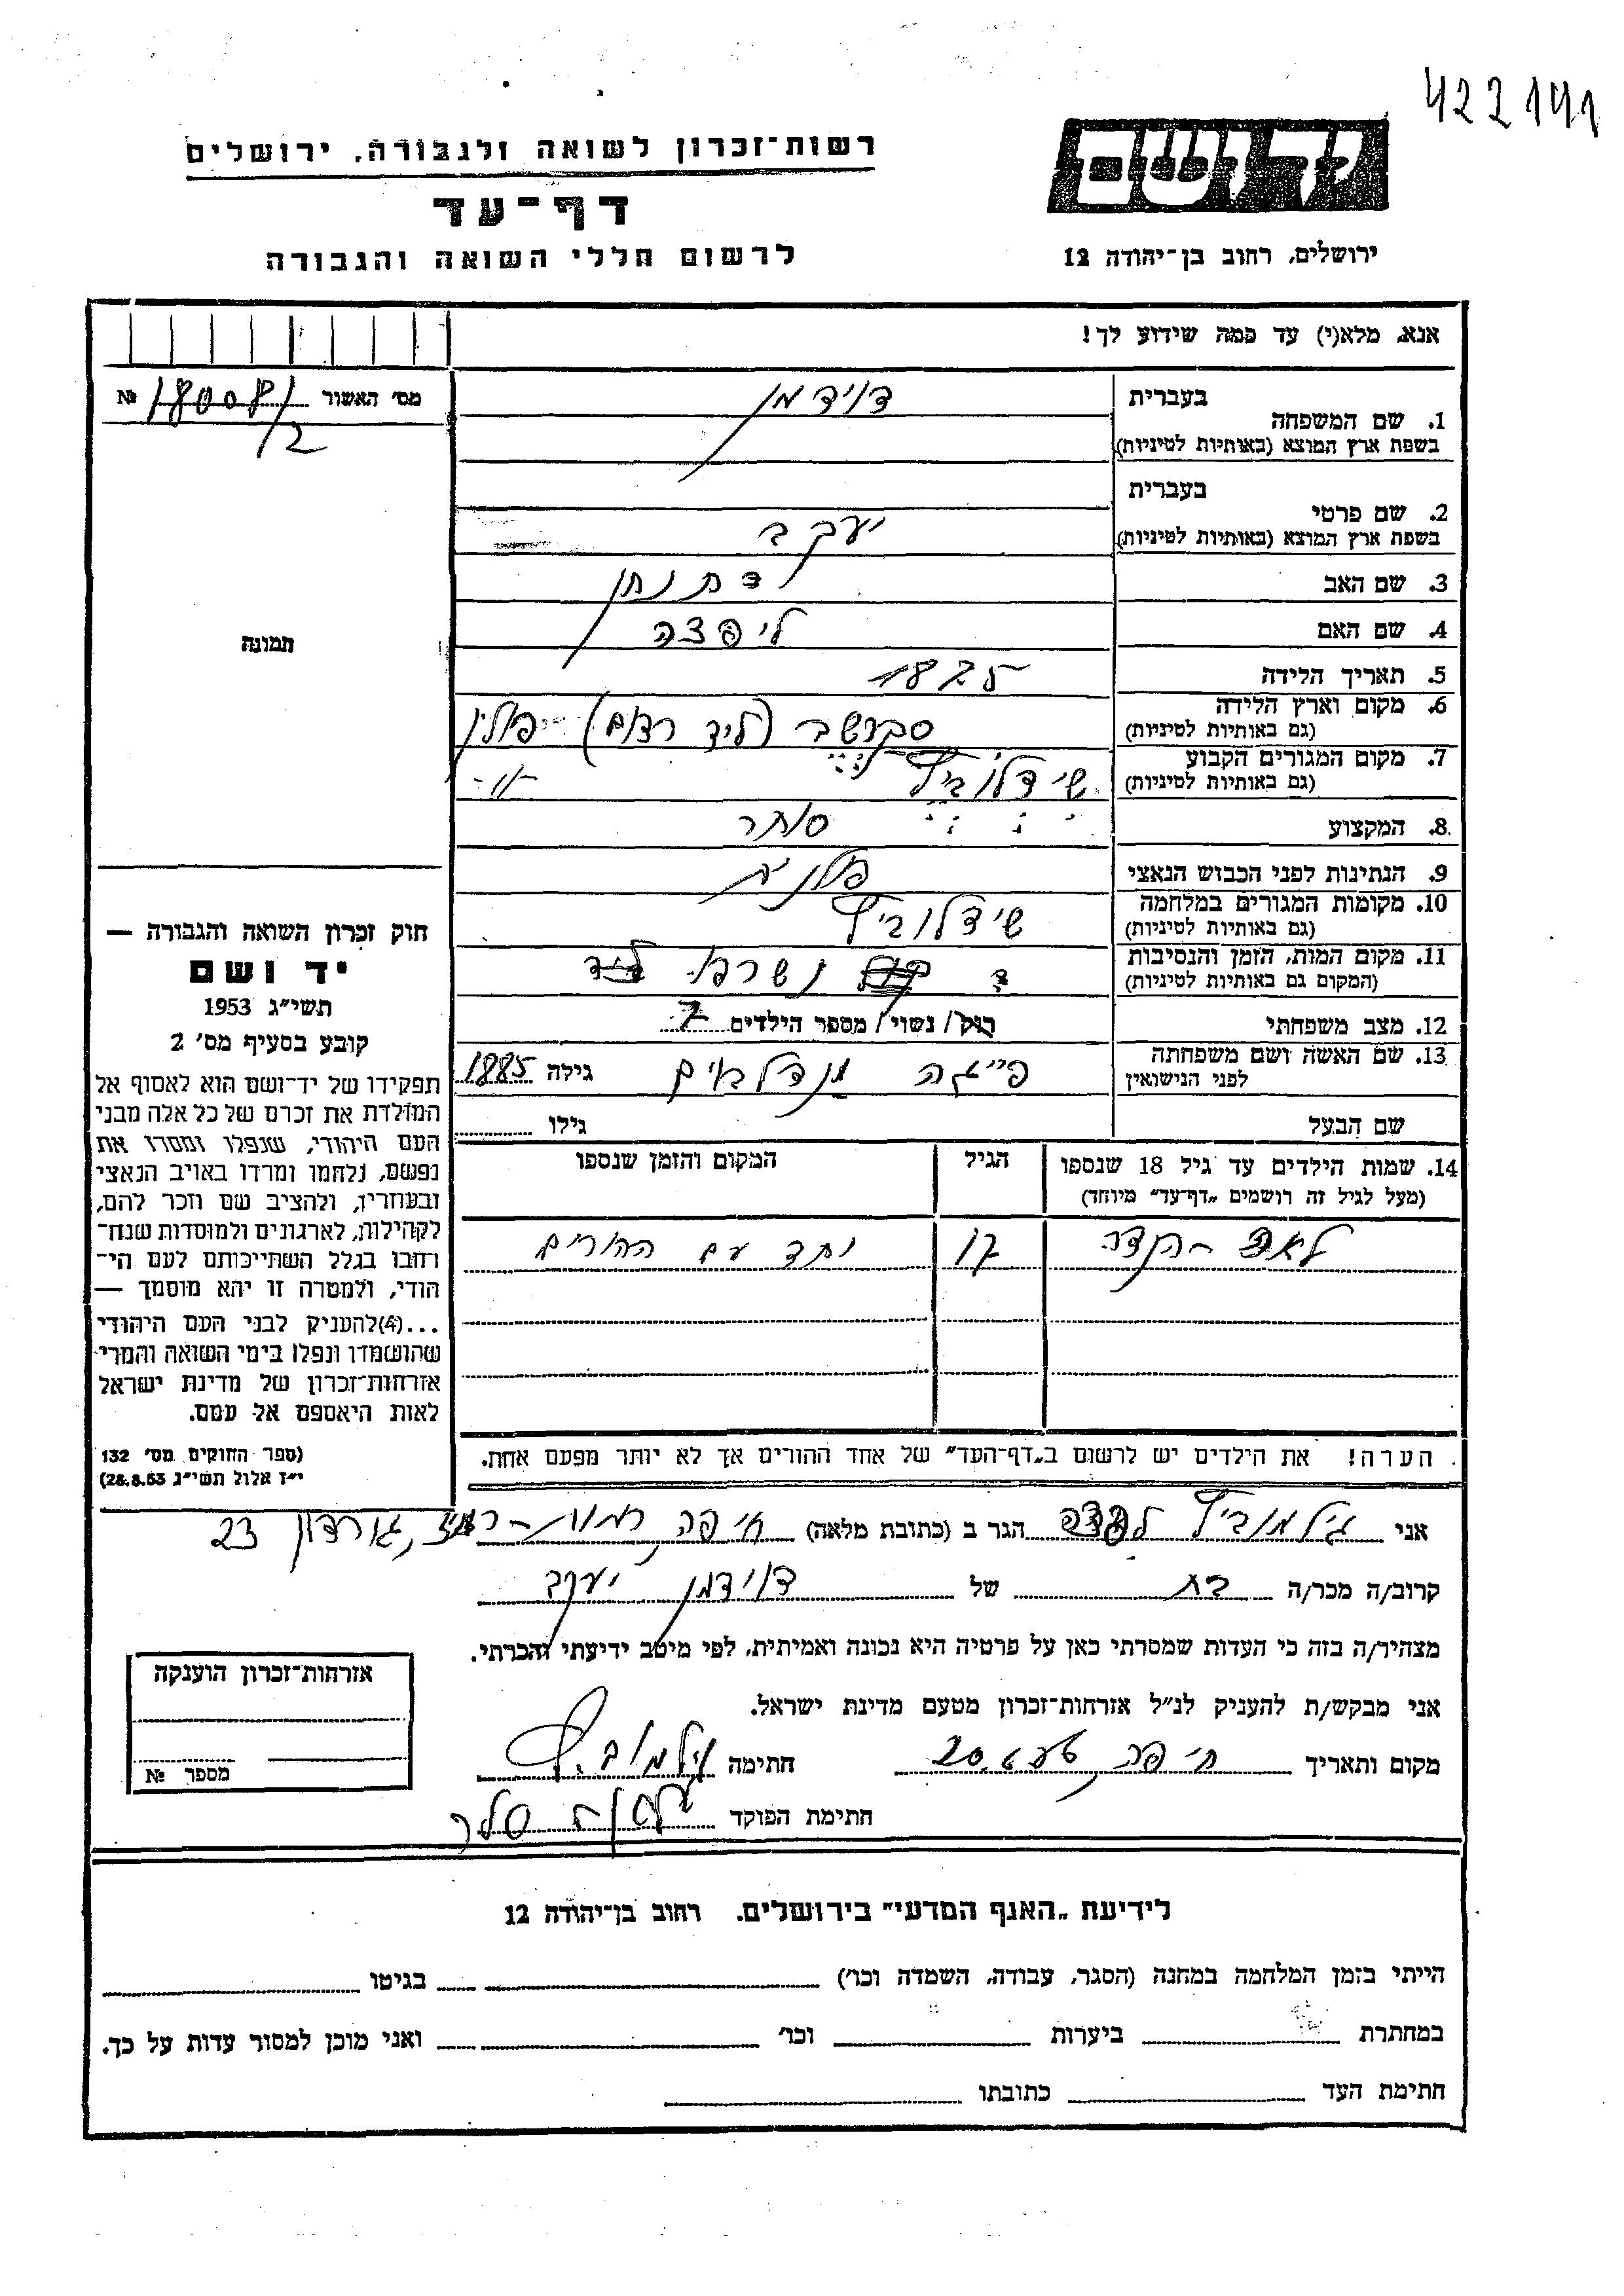 422141
יד ושם
רשות-זכרון לשואה ולגבורה, ירושלים
דף-עד
לרשום חללי השואה והגבורה
ירושלים, רחוב בן-יהודה 12
אנא, מלא(י) עד כמה שידוע לך!
מס' האשור 180081 №
/2
תמונה
1. שם המשפחה
בעברית דוידמן
בשפת ארץ המוצא (באותיות לטיניות)
2. שם פרטי
בעברית
בשפת ארץ המוצא (באותיות לטיניות) יעקב
3. שם האב נתן
4. שם האם ליפצה
5. תאריך הלידה
6. מקום וארץ הלידה (ליד רדום) - פולין
(גם באותיות לטיניות)
7. מקום המגורים הקבוע שידלוביץ -״-
(גם באותיות לטיניות)
8. המקצוע סוחר
9. הנתינות לפני הכבוש הנאצי פולנית
10. מקומות המגורים במלחמה שידלוביץ
(גם באותיות לטיניות)
11. מקום המות, הזמן והנסיבות נשרפו
(המקום גם באותיות לטיניות)
12. מצב משפחתי רוק/ נשוי/ מספר הילדים 7
13. שם האשה ושם משפחתה פייגה מנדלבוים גילה 1885
לפני הנישואין
שם הבעל גילו
14. שמות הילדים עד גיל 18 שנספו הגיל המקום והזמן שנספו
(מעל לגיל זה רושמים „דף-עד" מיוחד)
17 יחד עם ההורים
הערה! את הילדים יש לרשום ב„דף-העד" של אחד ההורים אך לא יותר מפעם אחת.
חוק זכרון השואה והגבורה —
יד ושם
תשי"ג 1953
קובע בסעיף מס' 2
תפקידו של יד-ושם הוא לאסוף אל
המולדת את זכרם של כל אלה מבני
העם היהודי, שנפלו ומסרו את
נפשם, נלחמו ומרדו באויב הנאצי
ובעוזריו, ולהציב שם וזכר להם,
לקהילות, לארגונים ולמוסדות שנח-
רחבו בגלל השתייכותם לעם הי-
הודי, ולמטרה זו יהא מוסמך —
...(4)להעניק לבני העם היהודי
שהושמדו ונפלו בימי השואה והמרי
אזרחות-זכרון של מדינת ישראל
לאות היאספם אל עמם.
(ספר החוקים מס' 132
י"ז אלול תשי"ג 28.8.53)
אני גילמוביץ הגר ב (כתובת מלאה) חיפה גורדון 23
קרוב/ה מכר/ה בת של דוידמן יעקב
מצהיר/ה בזה כי העדות שמסרתי כאן על פרטיה היא נכונה ואמיתית, לפי מיטב ידיעתי והכרתי.
אני מבקש/ת להעניק לנ"ל אזרחות-זכרון מטעם מדינת ישראל.
מקום ותאריך חיפה, חתימה גילמוביץ
חתימת הפוקד
אזרחות-זכרון הוענקה
מספר №
לידיעת „האגף המדעי" בירושלים, רחוב בן-יהודה 12
הייתי בזמן המלחמה במחנה (הסגר, עבודה, השמדה וכו') בגיטו
במחתרת ביערות וכו' ואני מוכן למסור עדות על כך.
חתימת העד כתובתו